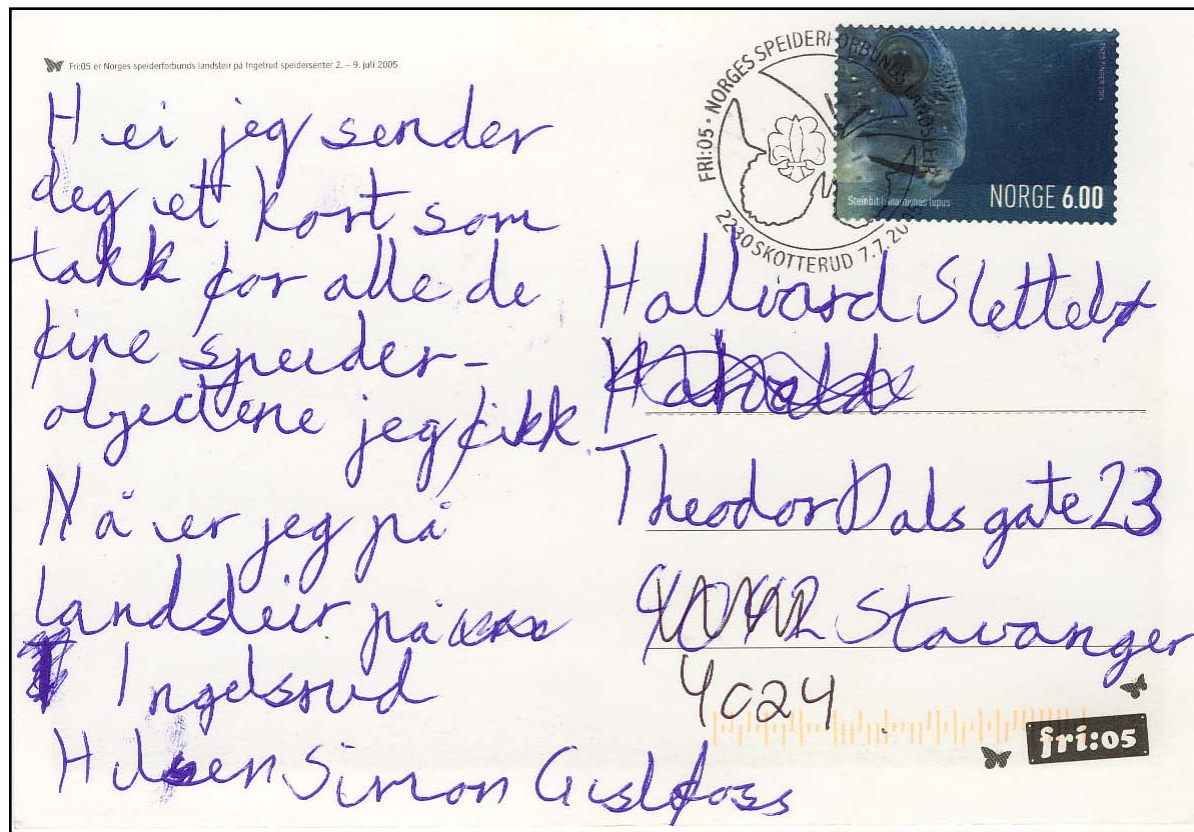 Fri:05 er Norges speiderforbunds landsleir på Ingelsrud speidersenter 2. – 9. juli 2005
Hei jeg sender
deg et kort som
takk for alle de
fine speider-
objectene jeg fikk.
Nå er jeg på
landsleir på
Ingelsrud
Hilsen Simon Gislefoss
FRI:05 · NORGES SPEIDERFORBUNDS LANDSLEIR
2230 SKOTTERUD 7.7.20
Steinbit Anarhichas lupus
NORGE 6.00
Hallvard Slettebø
Theodor Dals gate 23
Stavanger
4024
fri:05